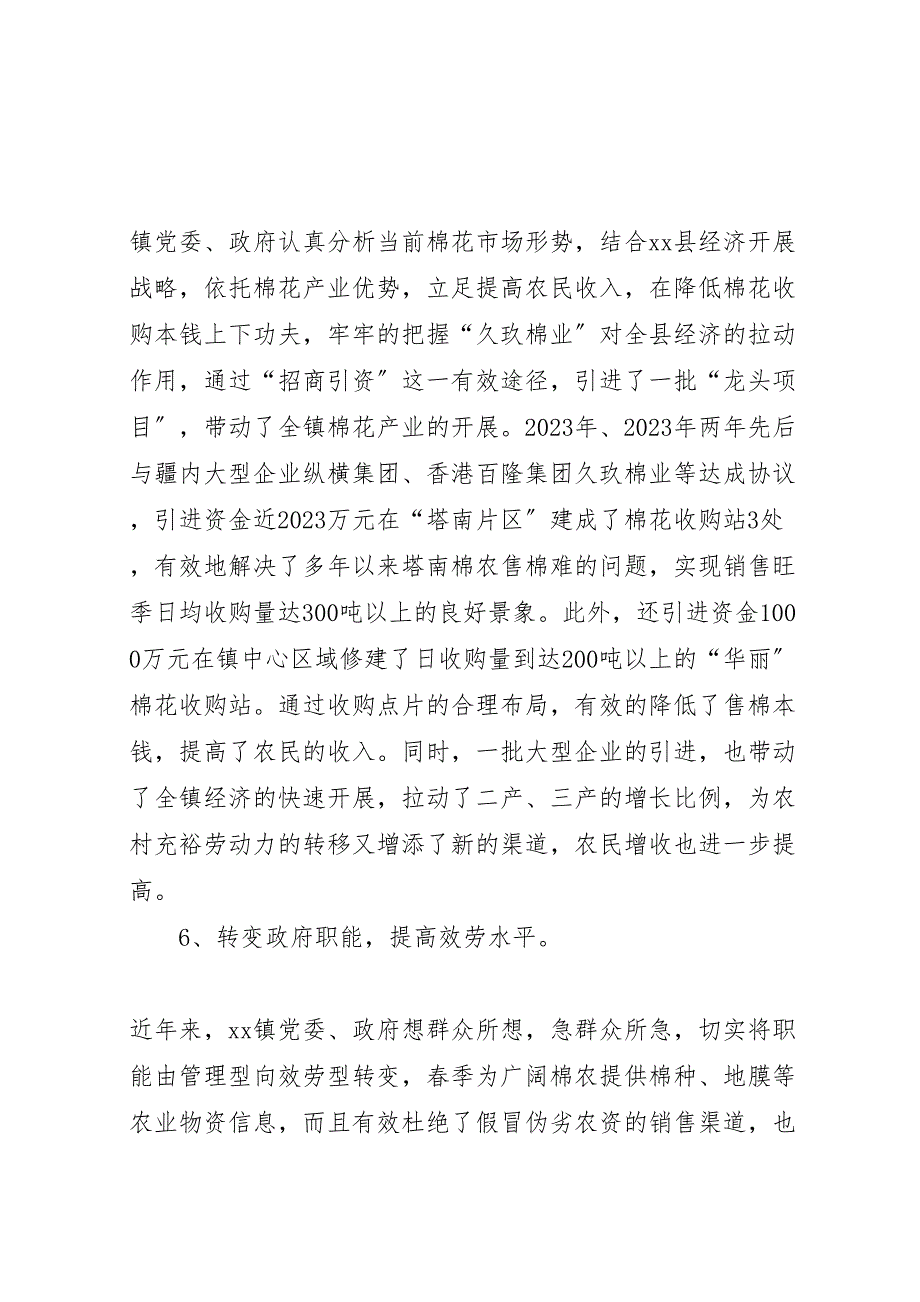 镇党委、政府认真分析当前棉花市场形势，结合xx县经济开展
战略，依托棉花产业优势，立足提高农民收入，在降低棉花收
购本钱上下功夫，牢牢的把握“久玖棉业〞对全县经济的拉动
作用，通过“招商引资〞这一有效途径，引进了一批“龙头项
目〞，带动了全镇棉花产业的开展。2023年、2023年两年先后
与疆内大型企业纵横集团、香港百隆集团久玖棉业等达成协议
，引进资金近2023万元在“塔南片区〞建成了棉花收购站3处
，有效地解决了多年以来塔南棉农售棉难的问题，实现销售旺
季日均收购量达300吨以上的良好景象。此外，还引进资金100
0万元在镇中心区域修建了日收购量到达200吨以上的“华丽〞
棉花收购站。通过收购点片的合理布局，有效的降低了售棉本
钱，提高了农民的收入。同时，一批大型企业的引进，也带动
了全镇经济的快速开展，拉动了二产、三产的增长比例，为农
村充裕劳动力的转移又增添了新的渠道，农民增收也进一步提
高。
6、转变政府职能，提高效劳水平。
近年来，xx镇党委、政府想群众所想，急群众所急，切实将职
能由管理型向效劳型转变，春季为广阔棉农提供棉种、地膜等
农业物资信息，而且有效杜绝了假冒伪劣农资的销售渠道，也